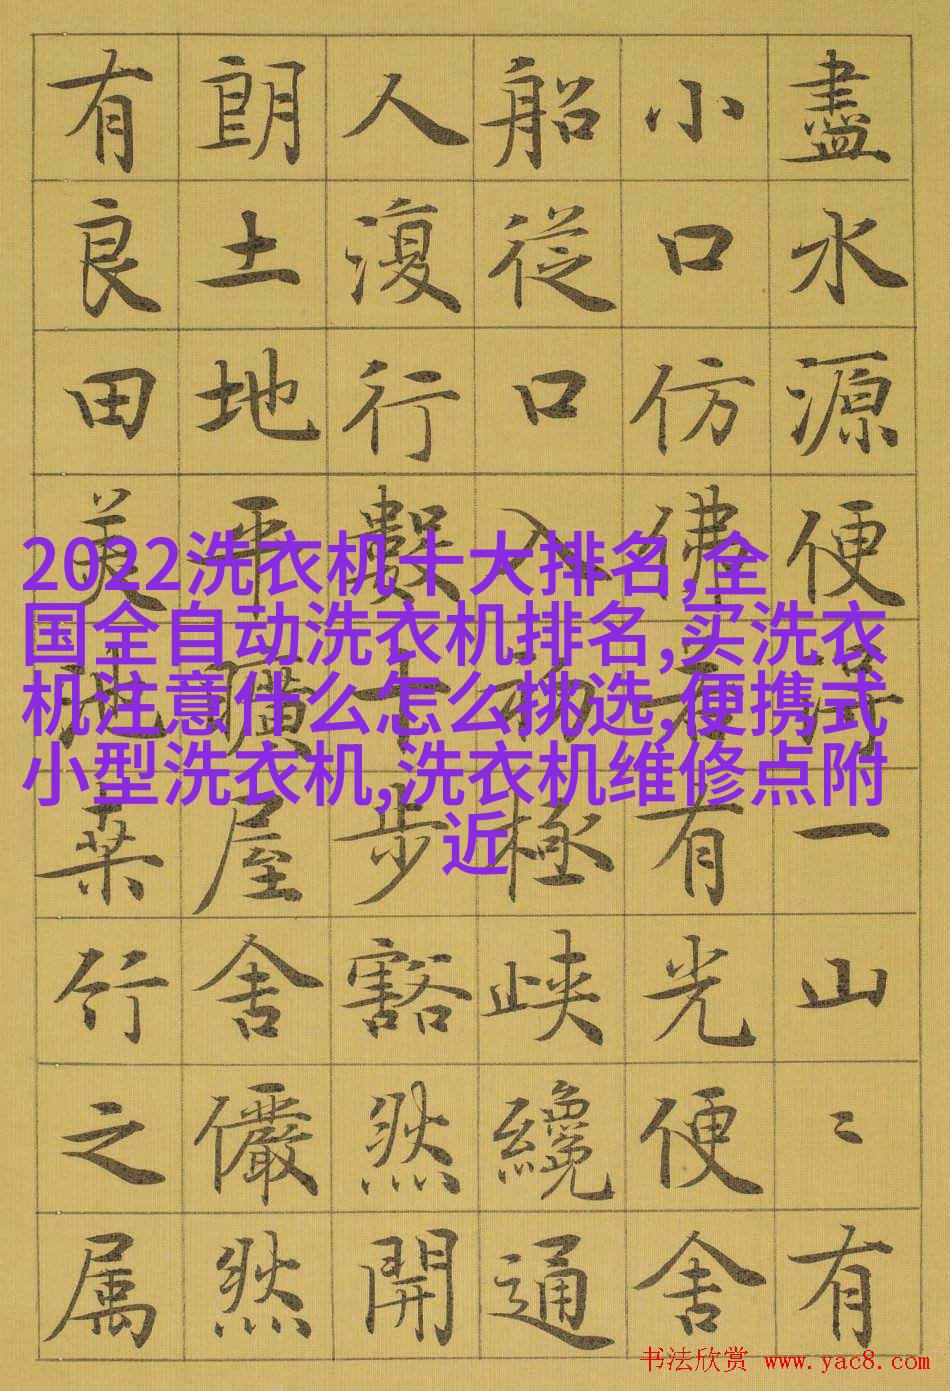 盡水源便得一山〻有
小口仿佛若有光便舍
船從口入初極峽纔通
人復行數十步豁然開
朗土地平曠屋舍儼然
有良田美池桒竹之属
2022洗衣机十大排名,全
国全自动洗衣机排名,买洗衣
机注意什么怎么挑选,便携式
小型洗衣机,洗衣机维修点附
近
书法欣赏 www.yac8.com